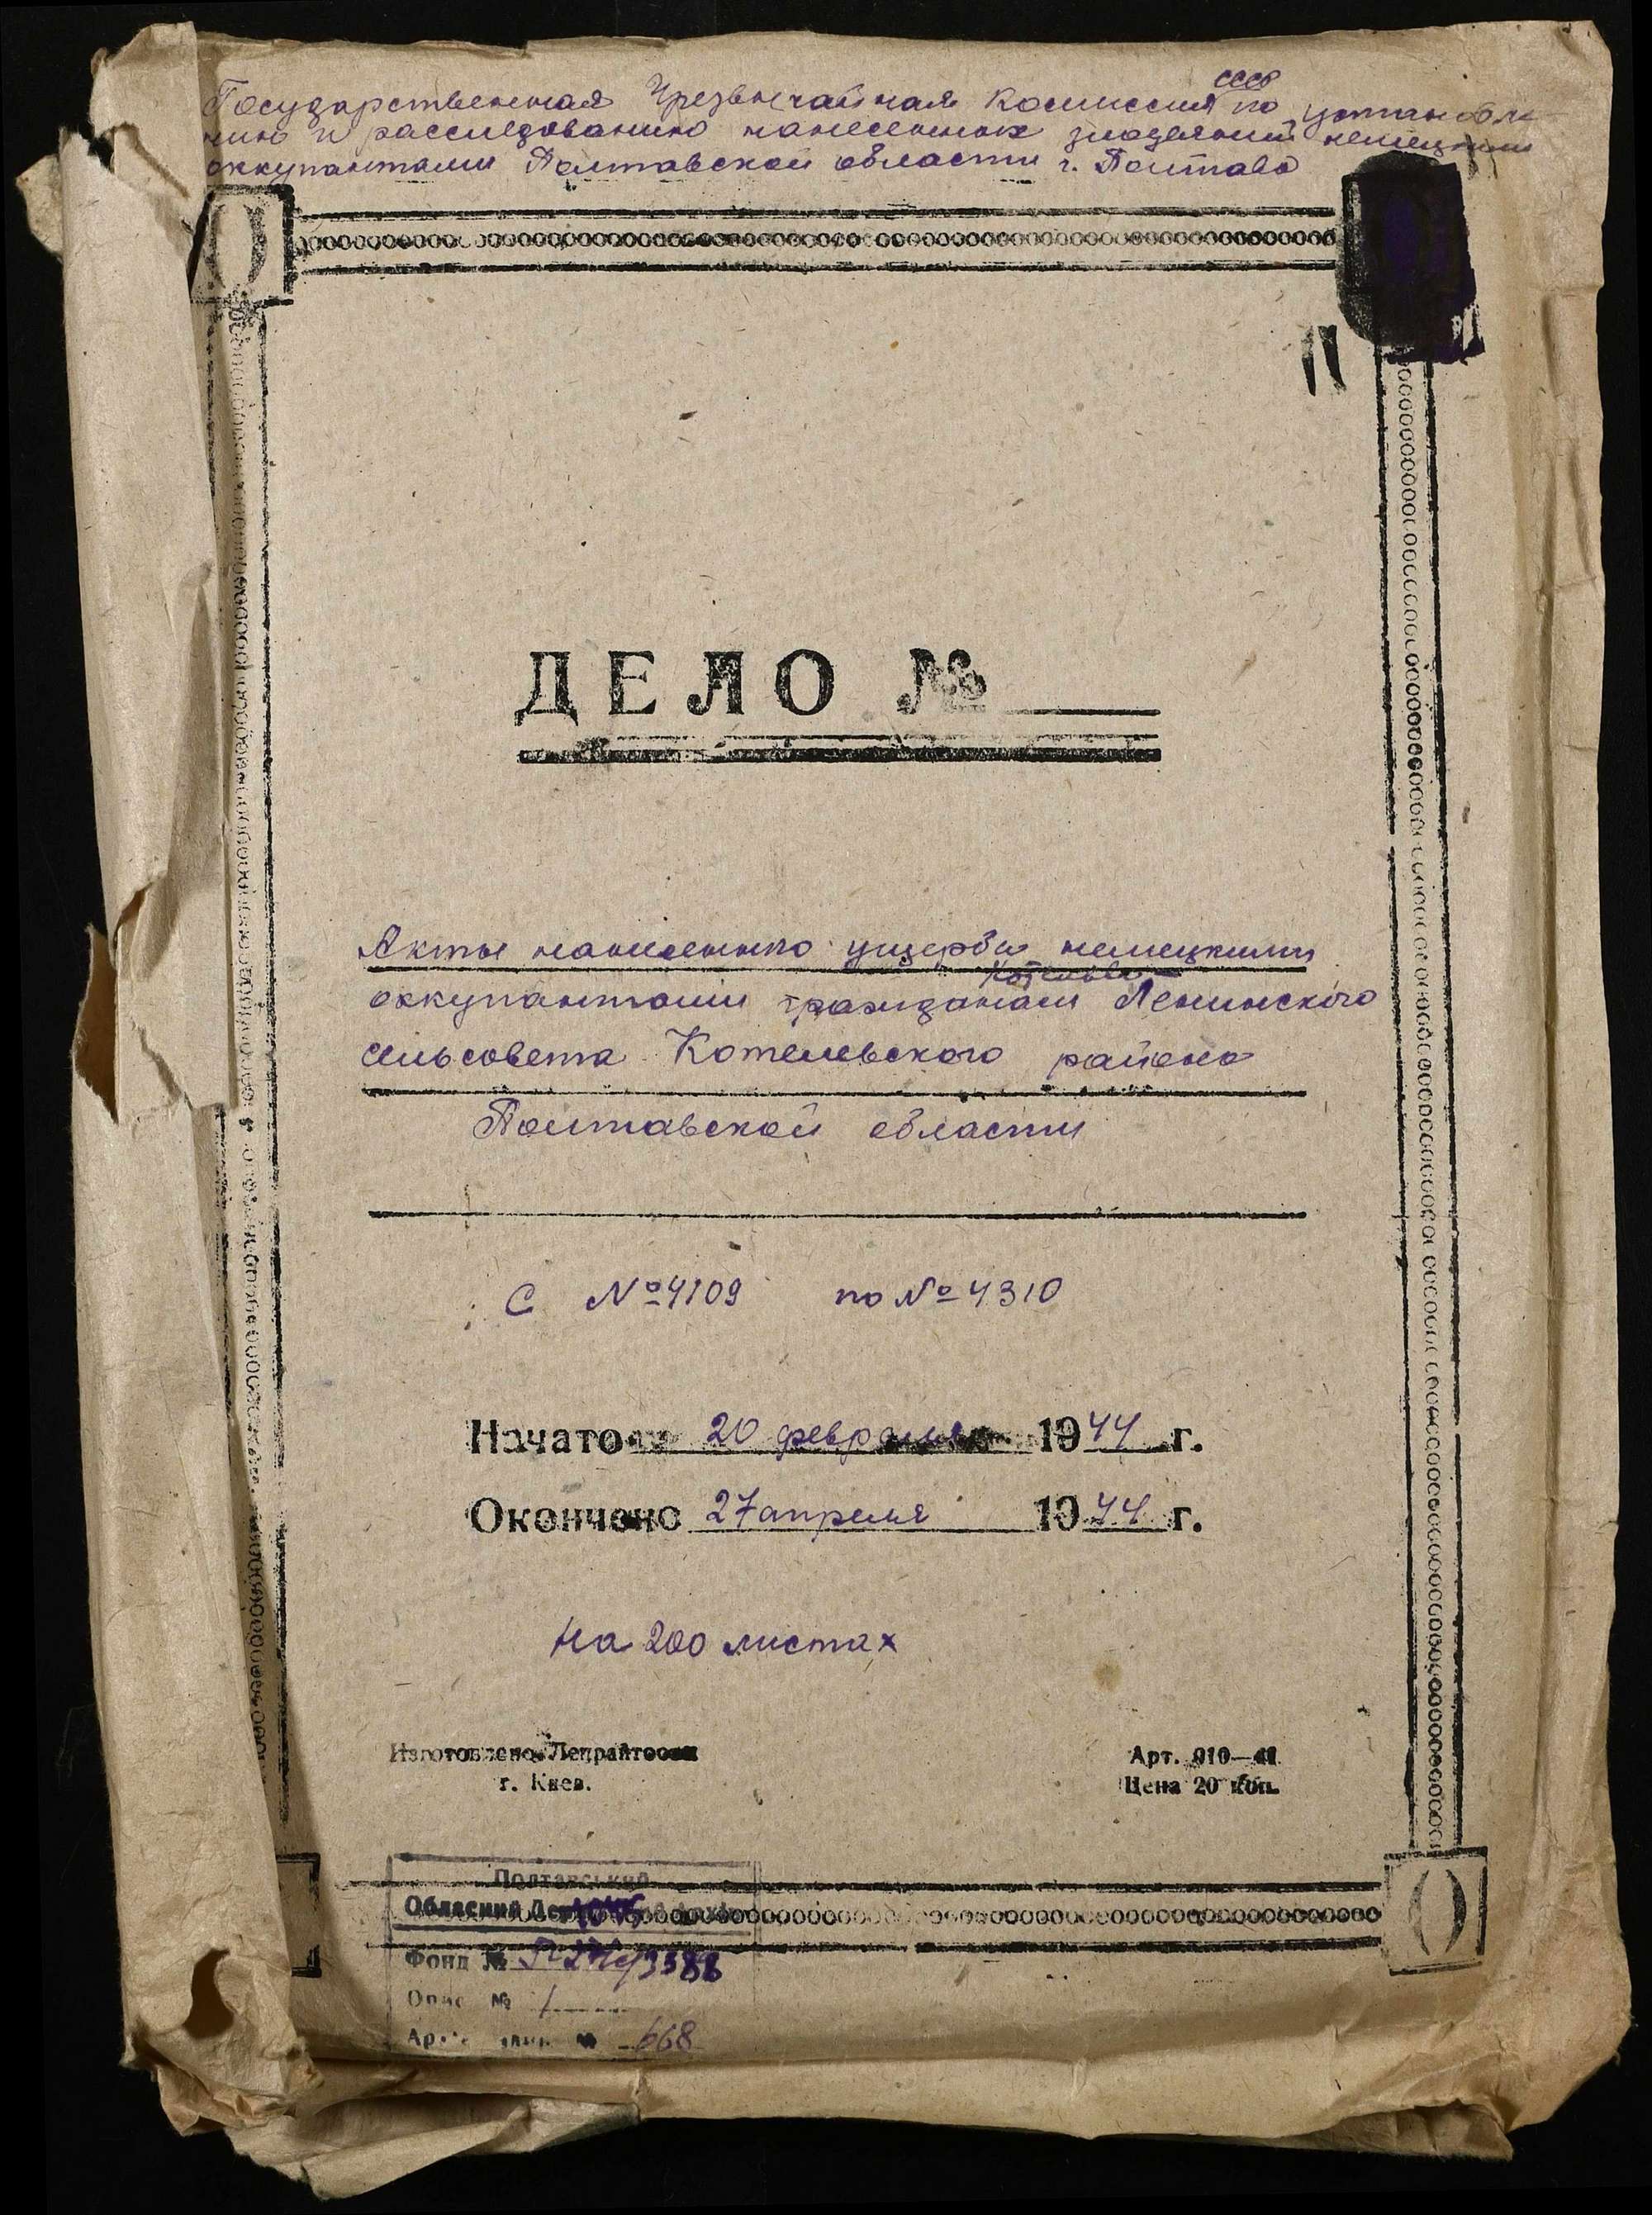 СССР
Государственная Чрезвычайная Комиссия по установле
нию и расследованию нанесенных злодеяний немецкими
оккупантами Полтавской области г. Полтава
ДЕЛО №
Акты нанисенного ущерба немецкими
оккупантами гражданам Ленинского
сельсовета Котелевского района
Полтавской области
С №4109 по №4310
Начато 20 февраля 1944 г.
Окончено 27 апреля 1944 г.
На 200 листах
Изготовлено
г. Киев.
Арт. 010—41
Цена 20 коп.
Полтавський
Обласний
Фонд № 3388
Опис № 1
668